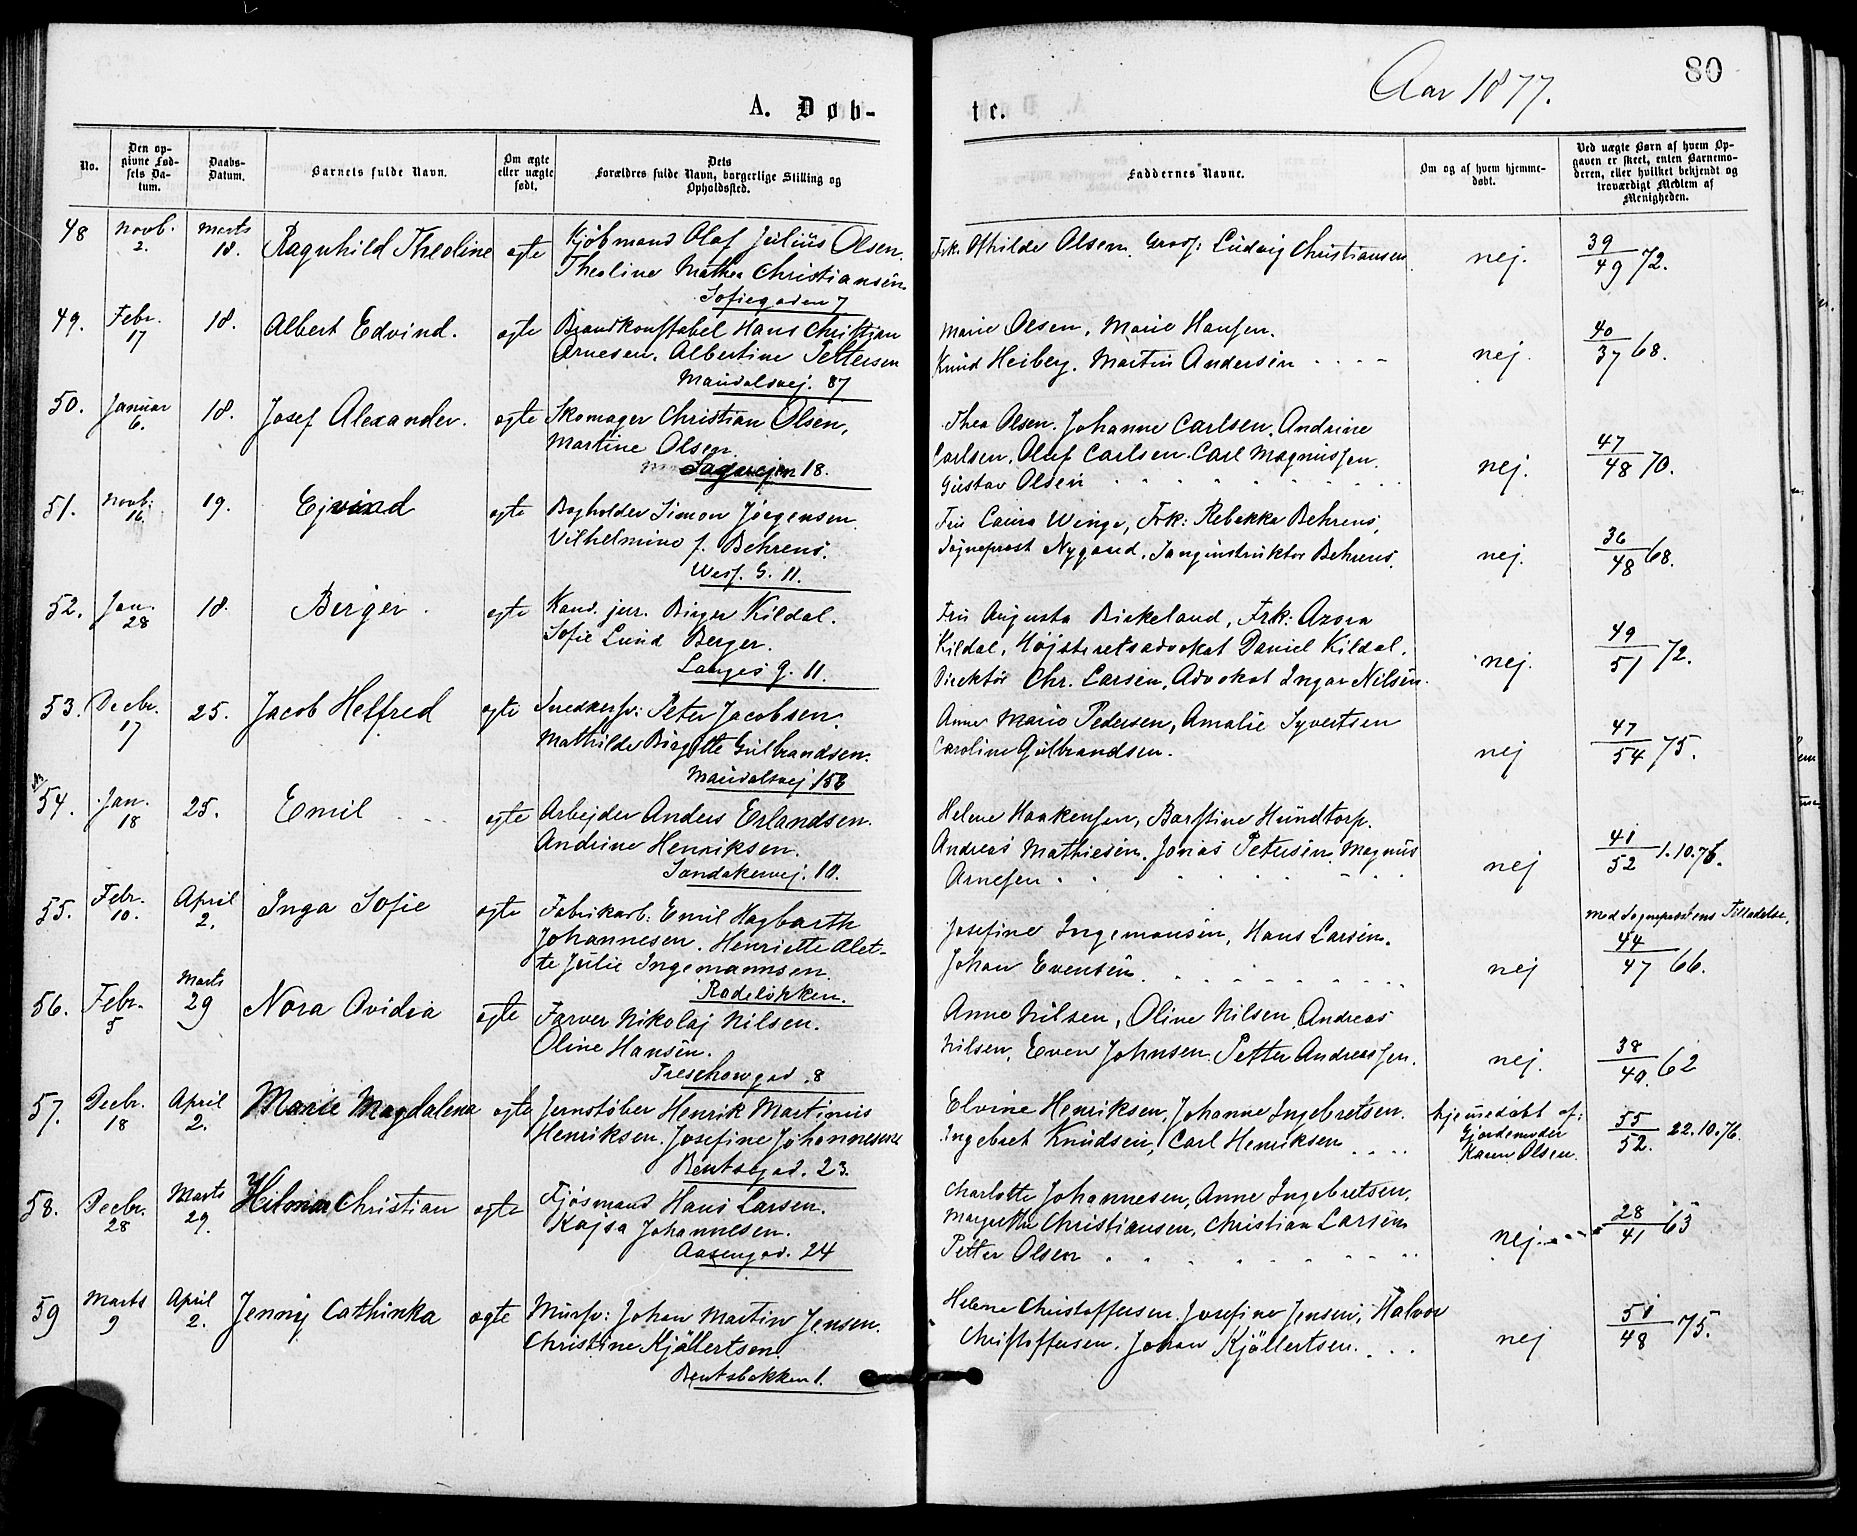 Aar 1877.
80
A. Døb-
te.
No.
Den op-
givne Fød-
sels Da-
tum.
Daabs-
Datum.
Barnets fulde Navn.
Om ægte
eller uægte
født.
Dets
Forældres fulde Navn, borgerlige Stilling og
Opholdssted.
Faddernes Navne.
Om og af hvem hjemme-
døbt.
Ved uægte Børn af hvem Op-
gaven er skeet, enten Barnemo-
deren, eller hvilket bekjendt og
troværdigt Medlem af
Menigheden.
48 Novb. 2. Marts 18. Ragnhild Theoline ægte Kjøbmand Olaf Julius Olsen.
Theoline Mathea Christiansen
Sofiegaden 7
Frk. Othilde Olsen. Gross: Ludvig Christiansen
nej. 39/49 72.
49. Febr. 17 18. Albert Edvind. ægte Brandkonstabel Hans Christian
Arnesen. Albertine Pettersen
Maridalsvej. 87
Marie Olsen, Marie Hansen.
Knud Heiberg. Martin Andersen
nej. 40/37 68.
50. Januar 6. 18. Josef Alexander. ægte Skomager Christian Olsen,
Martine Olsen.
Sagveien 18.
Thea Olsen. Johanne Carlsen. Andrine
Carlsen. Oluf Carlsen. Carl Magnussen.
Gustav Olsen
nej. 47/48 70.
51. Novb. 16. 19. Ejvind ægte Bogholder Simon Jørgensen
Vilhelmine f. Behrens.
Wess. G. 11.
Fru Laura Winge, Frk: Rebekka Behrens,
Sogneprest Nygaard, Sanginstruktør Behrens.
nej. 36/48 68.
52. Jan. 28 18. Berger. ægte Kand. jur. Birger Kildal.
Sofie Lund Berger.
Langes g. 11.
Fru Augusta Birkeland, Frk: Azora
Kildal, Højesteretsadvokat Daniel Kildal.
Direktør Chr. Larsen, Advokat Ingar Nilsen.
nej. 49/51 72.
53. Decbr. 17 25. Jacob Helfred ægte Snedkersv: Peter Jacobsen.
Mathilde Birgitte Gulbrandsen.
Maridalsvej 156
Anne Marie Pedersen, Amalie Syvertsen
Caroline Gulbrandsen.
nej 47/54 75.
54. Jan. 18 25. Emil ægte Arbejder Anders Erlandsen.
Andrine Henriksen.
Sandakervej. 10.
Helene Haakensen, Barstine Hundtorp.
Andreas Mathiesen. Jonas Petersen Magnus
Arnesen
nej 41/52 1.10.76.
55. Febr. 10. April 2. Inga Sofie ægte Fabrikarb: Emil Hagbarth
Johannesen. Henriette Alet-
te Julie Ingemannsen.
Rodeløkken.
Josefine Ingemansen, Hans Larsen.
Johan Evensen
nej
med Sogneprestens Tilladelse.
44/47 66.
56. Febr. 5 Marts 29 Nora Ovidia ægte Farver Nikolaj Nilsen.
Oline Hansen.
Treschowgad. 8
Anne Nilsen, Oline Nilsen Andreas
Nilsen, Even Johnsen. Petter Andreassen.
nej. 38/40. 62
57. Decbr. 18 April 2. Marie Magdalena ægte Jernstøber Henrik Martinius
Henriksen. Josefine Johannesene
Bentsegad. 23.
Elvine Henriksen, Johanne Ingebretsen.
Ingebret Knudsen, Carl Henriksen
hjemmedøbt af:
Gjordemoder
Karen Olsen.
55/52. 22.10.76.
58. Decbr. 28 Marts 29. Hilmar Christian ægte Fjøsmand Hans Larsen.
Kajsa Johannesen.
Aasengad. 24
Charlotte Johannesen, Anne Ingebretsen.
Margrethe Christiansen, Christian Larsen
Petter Olsen
nej. 28/41 63
59 Marts 9 April 2. Jenny Cathinka ægte Mursv: Johan Martin Jensen.
Christine Kjällertsen.
Bentsbakken 1.
Helene Christoffersen, Josefine Jensen, Halvor
Christoffersen. Johan Kjällertsen.
nej 51/48 75.